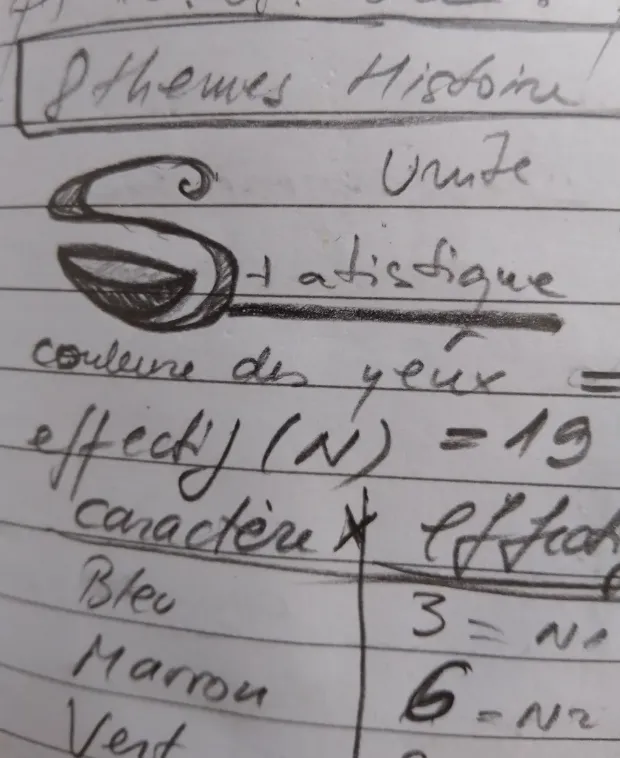 8 themes Histoire
Unite
Statistique
couleure des yeûx =
effectif (N) = 19
caractère X effect
Bleu 3 = N1
Marron 6 = N2
Vert